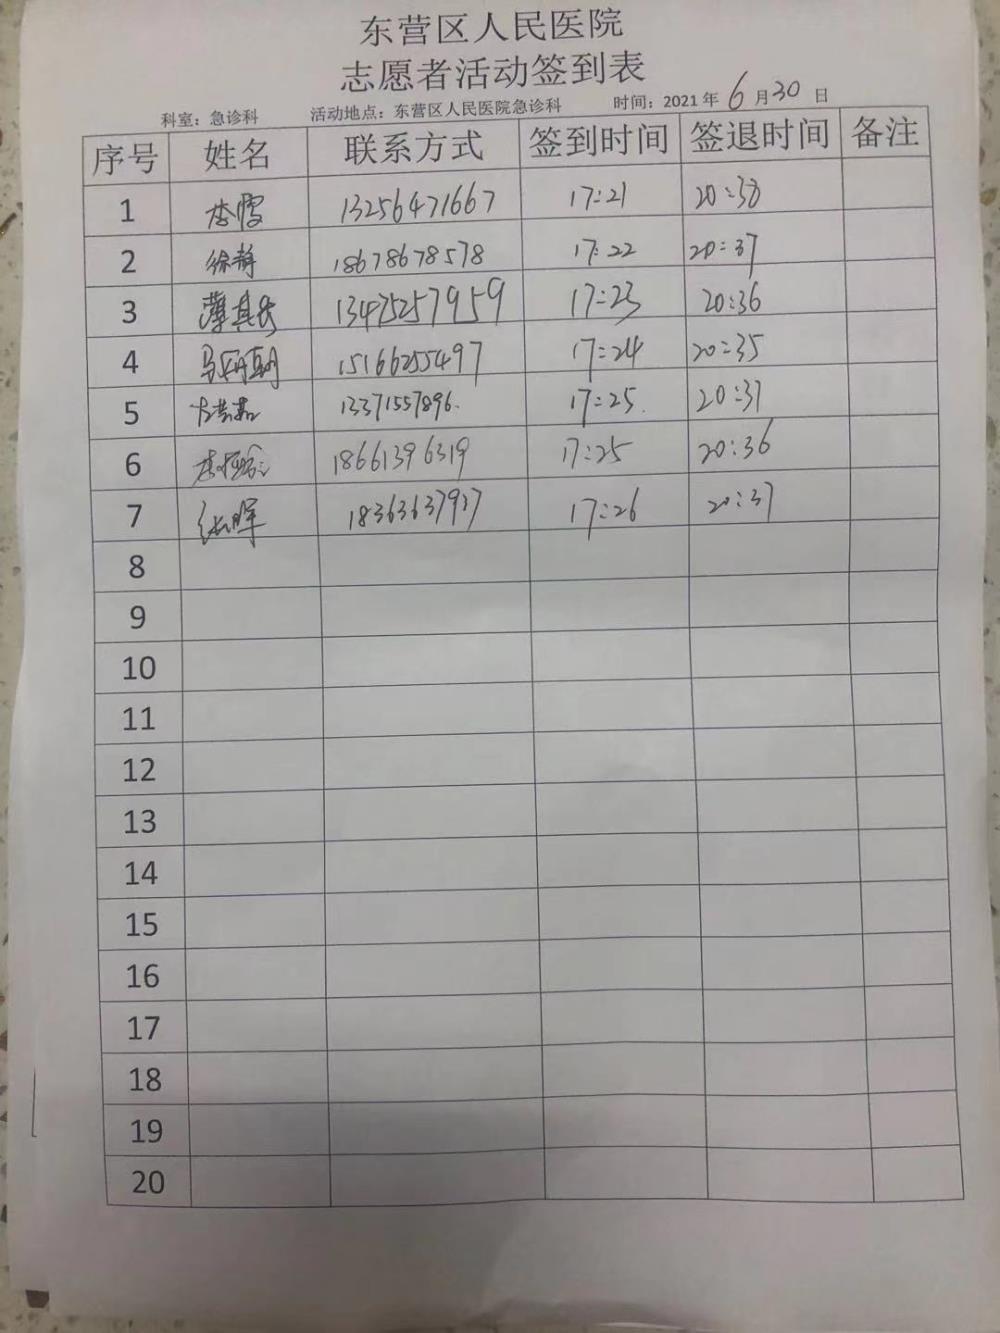 东营区人民医院
志愿者活动签到表
科室：急诊科 活动地点：东营区人民医院急诊科 时间：2021 年 6 月 30 日
序号 姓名 联系方式 签到时间 签退时间 备注
1 李雪 13256471667 17:21 20:38
2 徐静 18678678578 17:22 20:37
3 薄其 13475257959 17:23 20:36
4 马 15166255497 17:24 20:35
5 13371557896. 17:25. 20:37
6 李 18661396319 17:25 20:36
7 张晖 18363637937 17:26 20:37
8
9
10
11
12
13
14
15
16
17
18
19
20